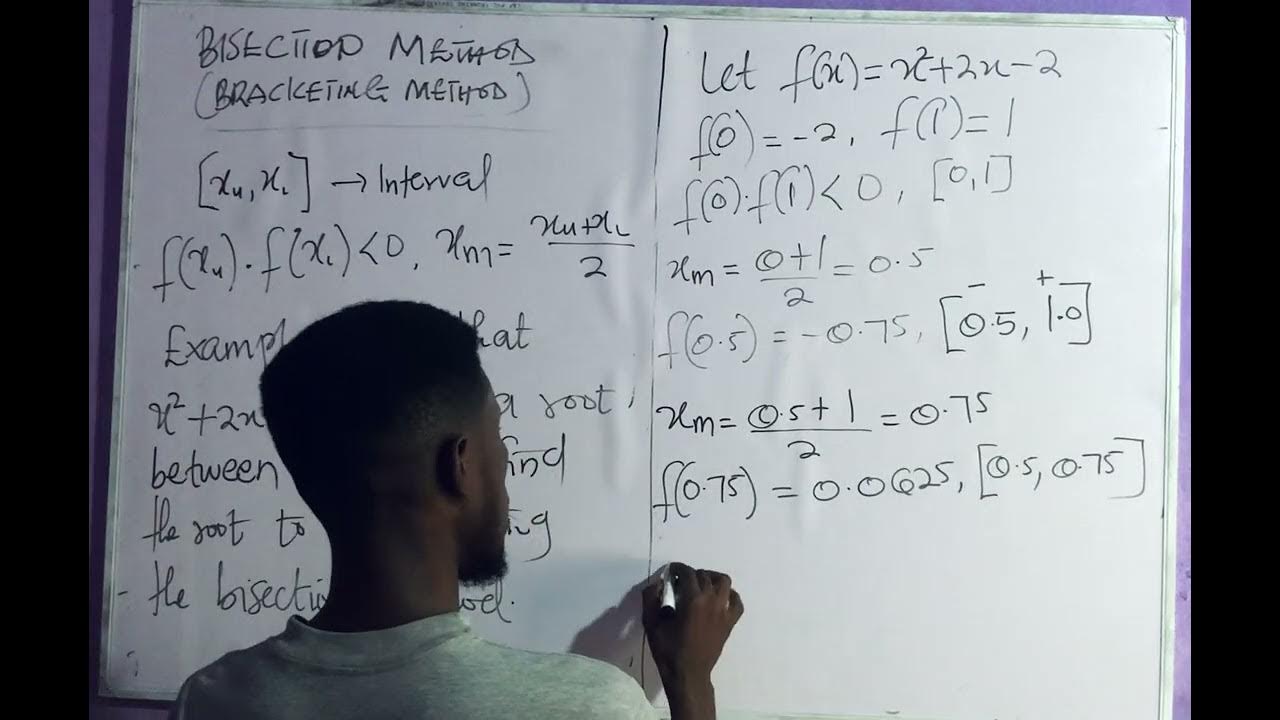 BISECTION METHOD
(BRACKETING METHOD)
[xu, xL] → Interval
f(xu). f(xL) < 0, xm = xu+xL / 2
Exampl hat
x²+2x a root
between find
the root to ng
the bisecti od.
Let f(x) = x²+2x-2
f(0) = -2, f(1) = 1
f(0).f(1) < 0, [0,1]
xm = 0+1 / 2 = 0.5
- +
f(0.5) = -0.75, [0.5, 1.0]
xm = 0.5+1 / 2 = 0.75
f(0.75) = 0.0625, [0.5, 0.75]